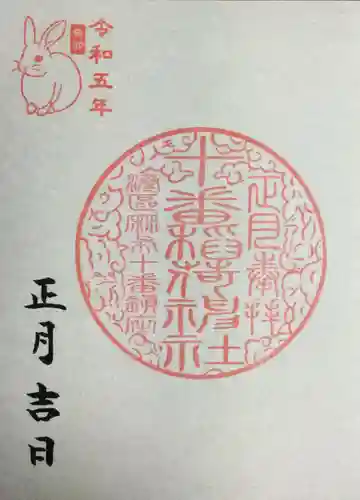 令和五年
正月奉拝
十番稲荷神社
港區麻布十番鎮座
正月吉日